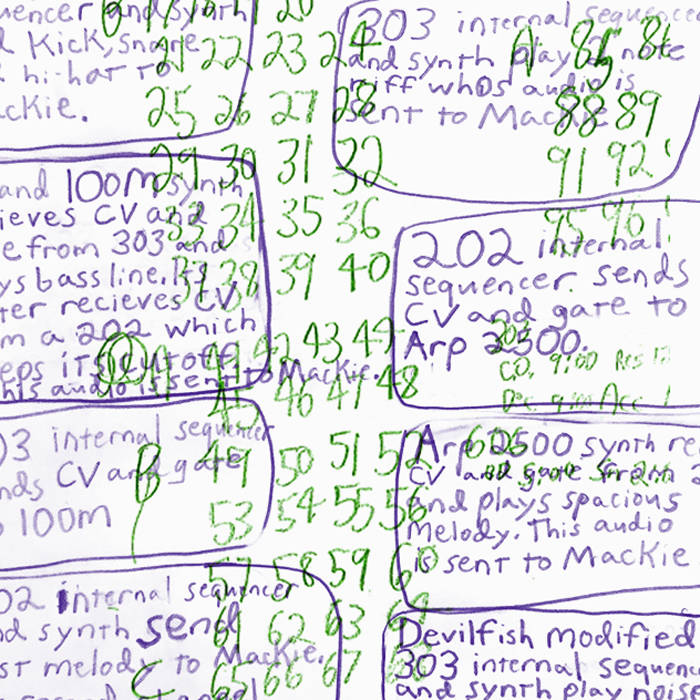 uencer and synth
Kick, snare
hi-hat to
ckie.
and 100m synth
ieves CV and
e from 303 and
ys bassline. Its
ter recieves CV
m a 202 which
eps its cutoff
his audio is sent to Mackie.
03 internal sequencer
nds CV and gate
100m
02 internal sequencer
nd synth send
st melody to Mackie.
303 internal sequencer
and synth play note
riff whos audio is
sent to Mackie
202 internal
sequencer sends
CV and gate to
Arp 2500.
Arp 2500 synth re
CV and gate from a
and plays spacious
melody. This audio
is sent to Mackie
Devilfish modified
303 internal sequenc
and synth plays nois
20
21 22 23 24
25 26 27 28
29 30 31 32
33 34 35 36
37 38 39 40
42 43 44
45 46 47 48
B 49 50 51 52
53 54 55 56
57 58 59 60
61 62 63
C 65 66 67
A 85 86
88 89
91 92
95 96
CO. 9:00 Res 12
Dec 9am Acc
606